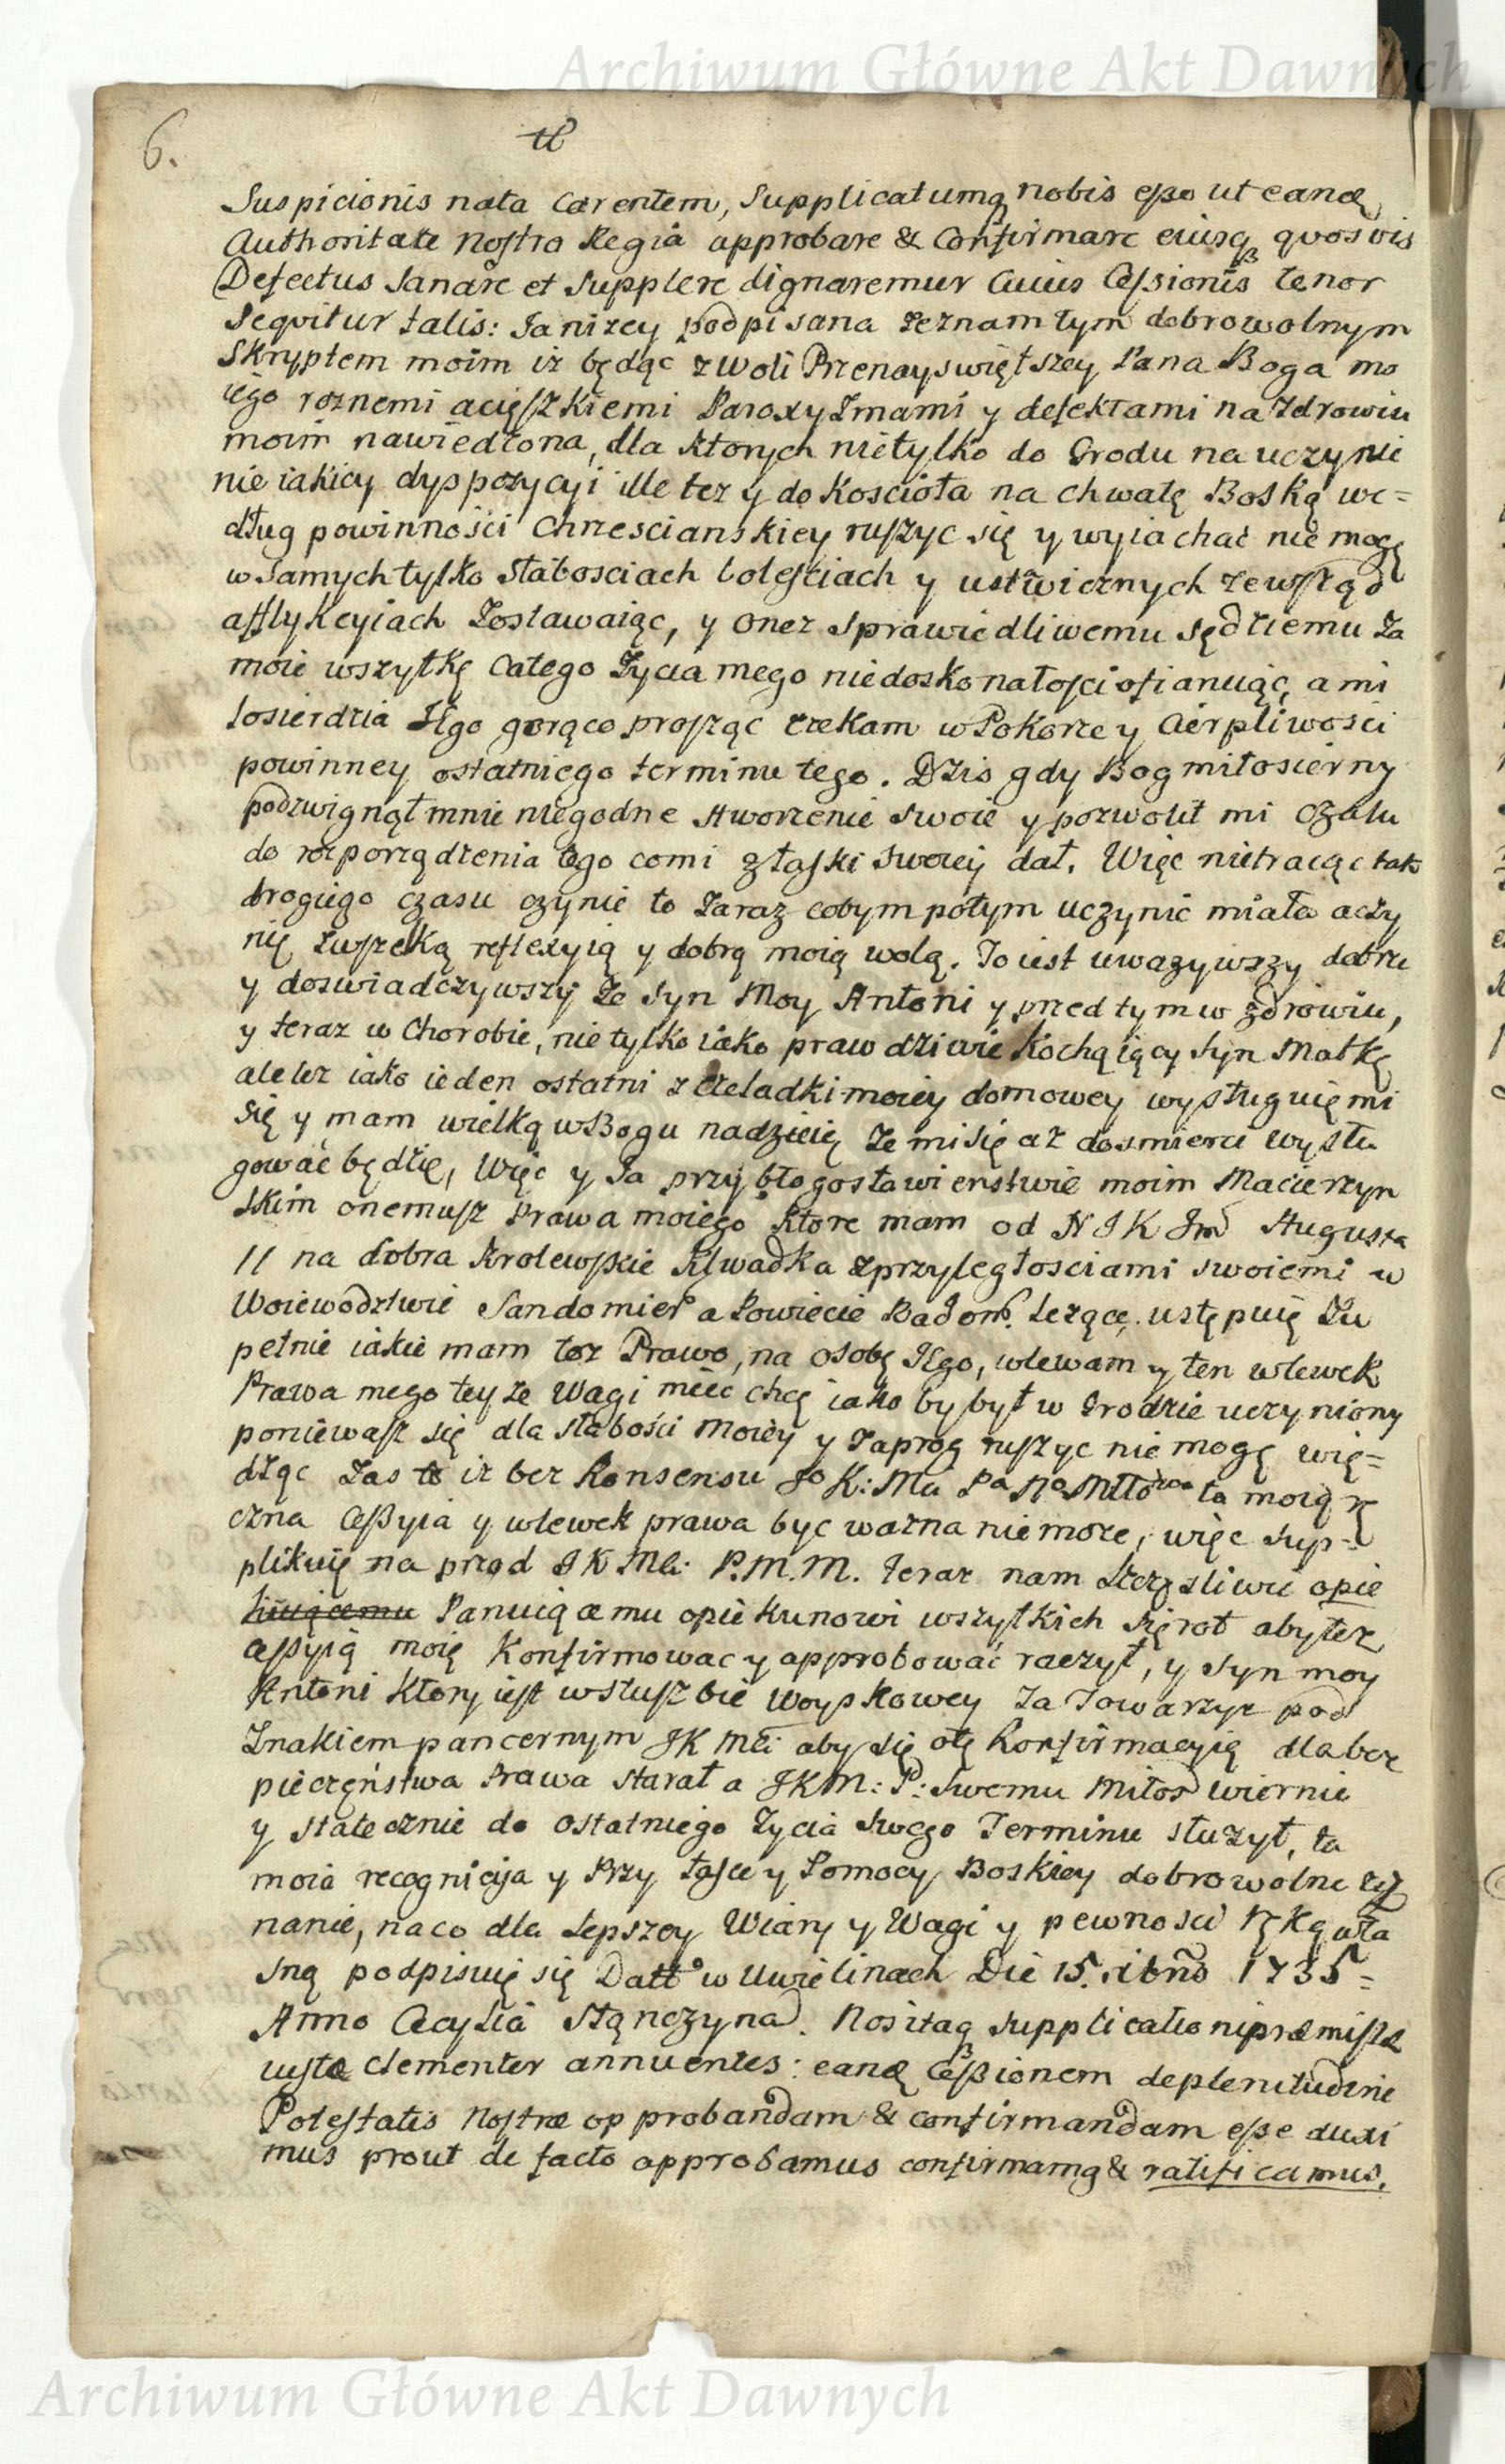 Archiwum Główne Akt Dawnych
6.
Suspicionis nota Carentem, Supplicatumq nobis eße ut eand
Authoritate Nostra Regia approbare & Confirmare eiusq quosvis
Defectus Sanare et Supplere dignaremur Cuius Ceſsionis tenor
Sequitur talis: Ja nizey podpisana zeznam tym dobrowolnym
Skryptem moim iz będąc z woli Przenayswiętszey Pana Boga mo
iego roznemi a cięſzkiemi Paroxyzmami y defektami na zdrowiu
moim nawiedzona, dla ktorych nietylko do Grodu na uczynie
nie iakiey dyspozycyi ille tez y do Koscioła na chwałę Boską we=
dług powinności Chrzescianskiey ruſzyc się y wyiachać nie mogę
w samych tylko słabosciach boleſciach y ustawicznych zewſząd
afflykcyiach zostawaiąc, y onez sprawiedliwemu sędziemu za
moie wszytkę całego zycia mego niedoskonałoſci ofiaruiąc, a mi
łosierdzia Jego gorąco proſząc czekam w Pokorze y Cierpliwości
powinney ostatniego terminu tego. Dzis gdy Bog miłosierny
podzwignął mnie niegodne stworzenie swoie y pozwolił mi czasu
do rozporządzenia tego co mi z łaſki swoiey dał. Więc nietracąc tak
drogiego czasu czynie to zaraz cobym potym uczynić miała a czy
nię zuſzełką reflexyią y dobrą moią wolą. To iest uwazywszy dobrze
y doswiadczywszy ze Syn Moy Antoni y przed tym w zdrowiu,
y teraz w Chorobie, nie tylko iako prawdziwie Kochąiący Syn Matkę
ale tez iako ieden ostatni z Czeladki moiey domowey wysługuię mi
się y mam wielką w Bogu nadzieię ze mi się az do smierci wysłu
gować będzie, Więc y Ja przy błogosławienstwie moim Macierzyn
skim onemuſz Prawa moiego ktore mam od N J K Jmci Augusta
II na dobra Krolewſkie Klwadka z przyległosciami swoiemi w
Woiewodztwie Sandomier a Powiecie Radom. lezące ustępuię zu
pełnie iakie mam toz Prawo, na osobę Jego, wlewam y ten wlewek
Prawa mego teyze Wagi miec chcę iako by był w Grodzie uczyniony
poniewaſz się dla słabości Moiey y za prog ruſzyc nie mogę wię=
dząc zas to iz bez Konsensu Jo K: Mci Pa No Miło ta moią rę
czna Ceßyia y wlewek prawa byc wazna nie moze, więc sup=
plikuię na przod J K Mci: P. M. M. teraz nam szczęsliwie opie
kuiącemu Panuiącemu opiekunowi wszytkich sięrot aby tez
Ceßyią moię Konfirmowac y approbować raczył, y Syn moy
Antoni ktory iest w sluſzbie Woyskowey Za Towarzyz pod
Znakiem pancernym JK Mci aby się o tę Konfirmacyią dla bez
pieczęństwa Prawa starał a JKM: P: Swemu Miłos wiernie
y statecznie do ostatniego zycia swego Terminu słuzył, ta
moia recognicya y Przy łaſce y Pomocy Boskiey dobrowolne zez
nanie, na co dla lepszey Wiary y Wagi y pewnosci rękę wła
sną podpisuię się Datt w Uwielinach Die 15. xibris 1735=
Anno Cecylia Stąnczyna. Nos itaq supplicationi præmiſsæ
iuſtæ clementer annuentes: eand Ceßionem de plenitudine
Potestatis Noſtræ approbandam & confirmandam eſse duxi
mus prout de facto approbamus confirmamq & ratificamus.
Archiwum Główne Akt Dawnych